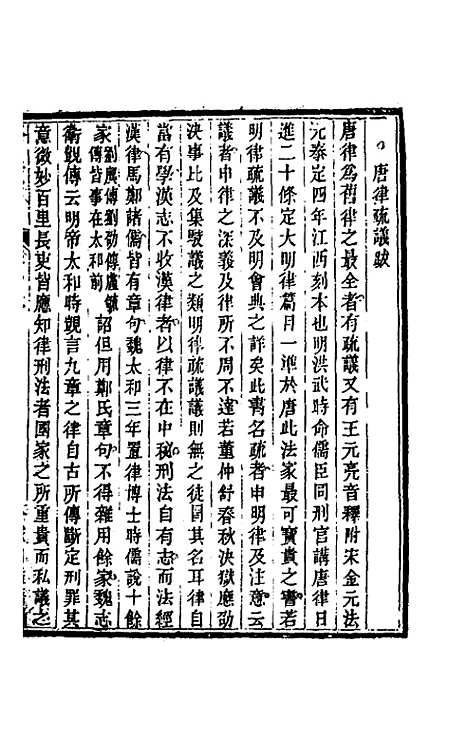 唐律疏議跋
唐律爲舊律之最全者有疏議又有王元亮音釋附宋金元法
元泰定四年江西刻本也明洪武時命儒臣同刑官講唐律日
進二十條定大明律篇目一準於唐此法家最可寶貴之書若
明律疏議不及明會典之詳矣此書名疏者申明律及注意云
議者申律之深義及律所不周不達若董仲舒春秋決獄應劭
決事比及集駮議之類明律疏議議則無之徒同其名耳律自
當有學漢志不收漢律者以律不在中秘刑法自有志而法經
漢律馬鄭諸儒皆有章句魏太和三年置律博士時儒說十餘
家劉廣傳劉劭傳盧毓傳皆事在太和前詔但用鄭氏章句不得雜用餘家魏志
衛覬傳云明帝太和時覬言九章之律自古所傳斷定刑罪其
意微妙百里長吏皆應知律刑法者國家之所重貴而私議之